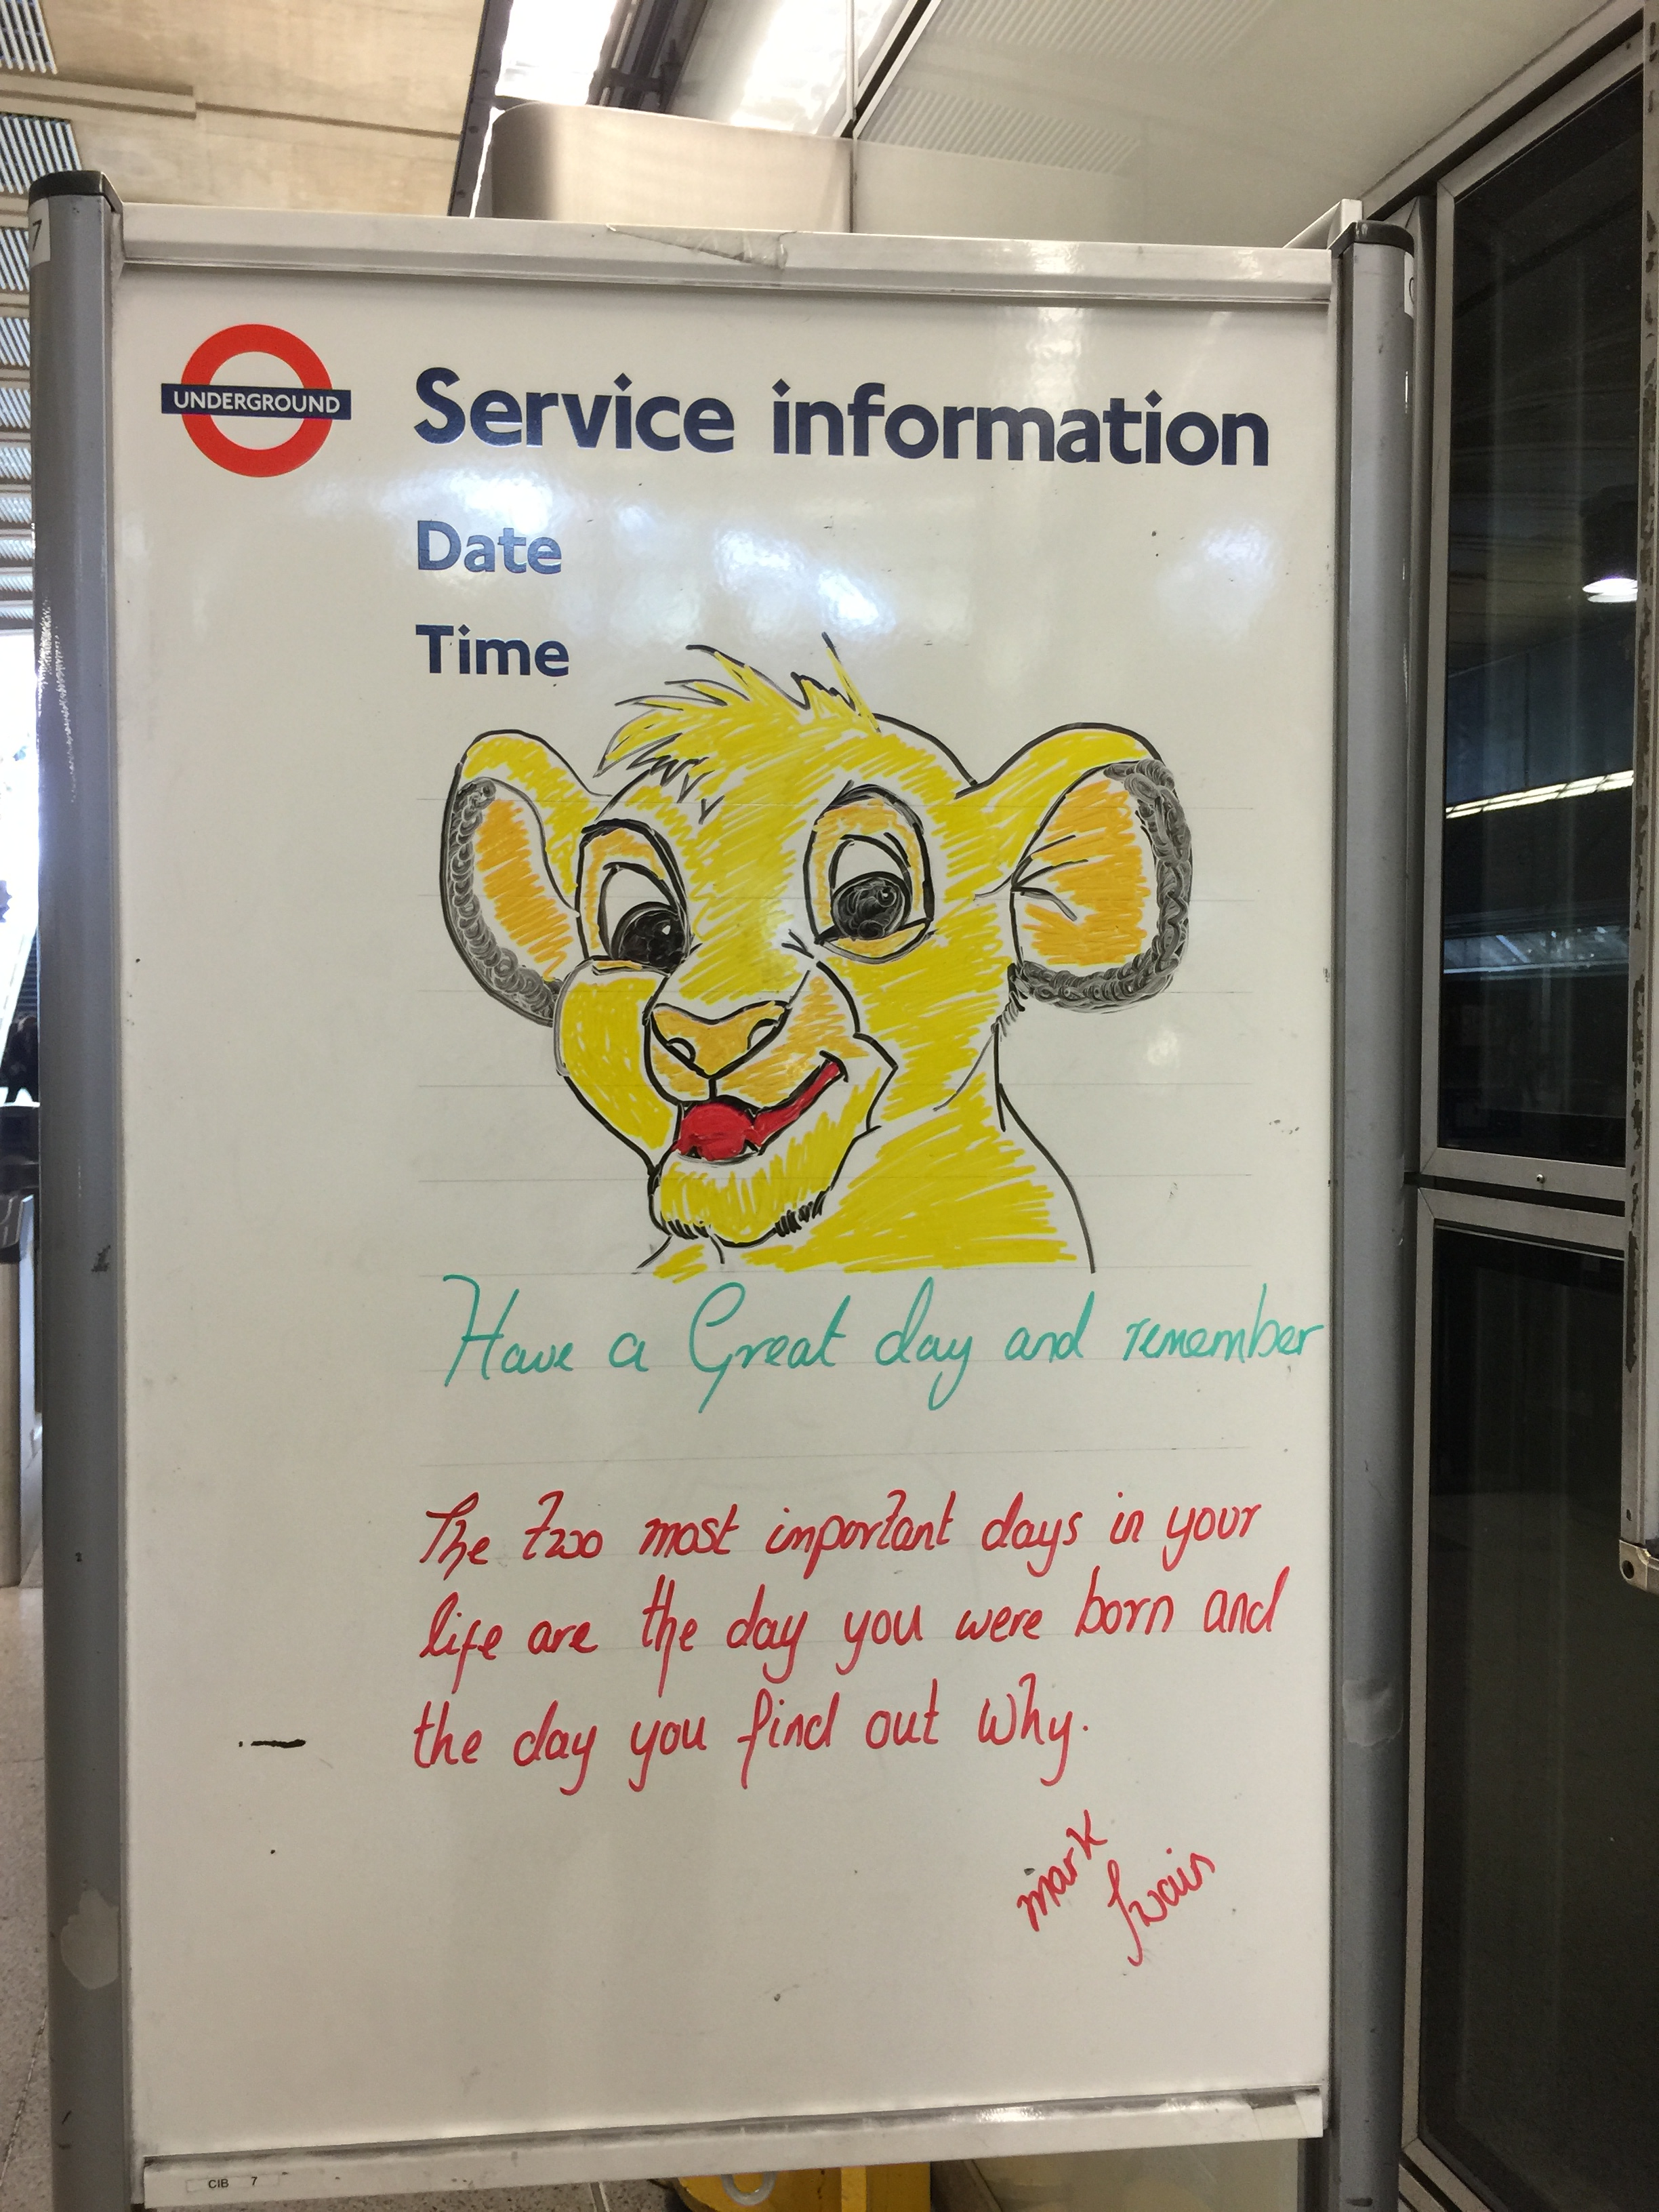 UNDERGROUND
Service information
Date
Time
Have a Great day and remember
The two most important days in your
life are the day you were born and
the day you find out why.
mark
twain
CIB 7